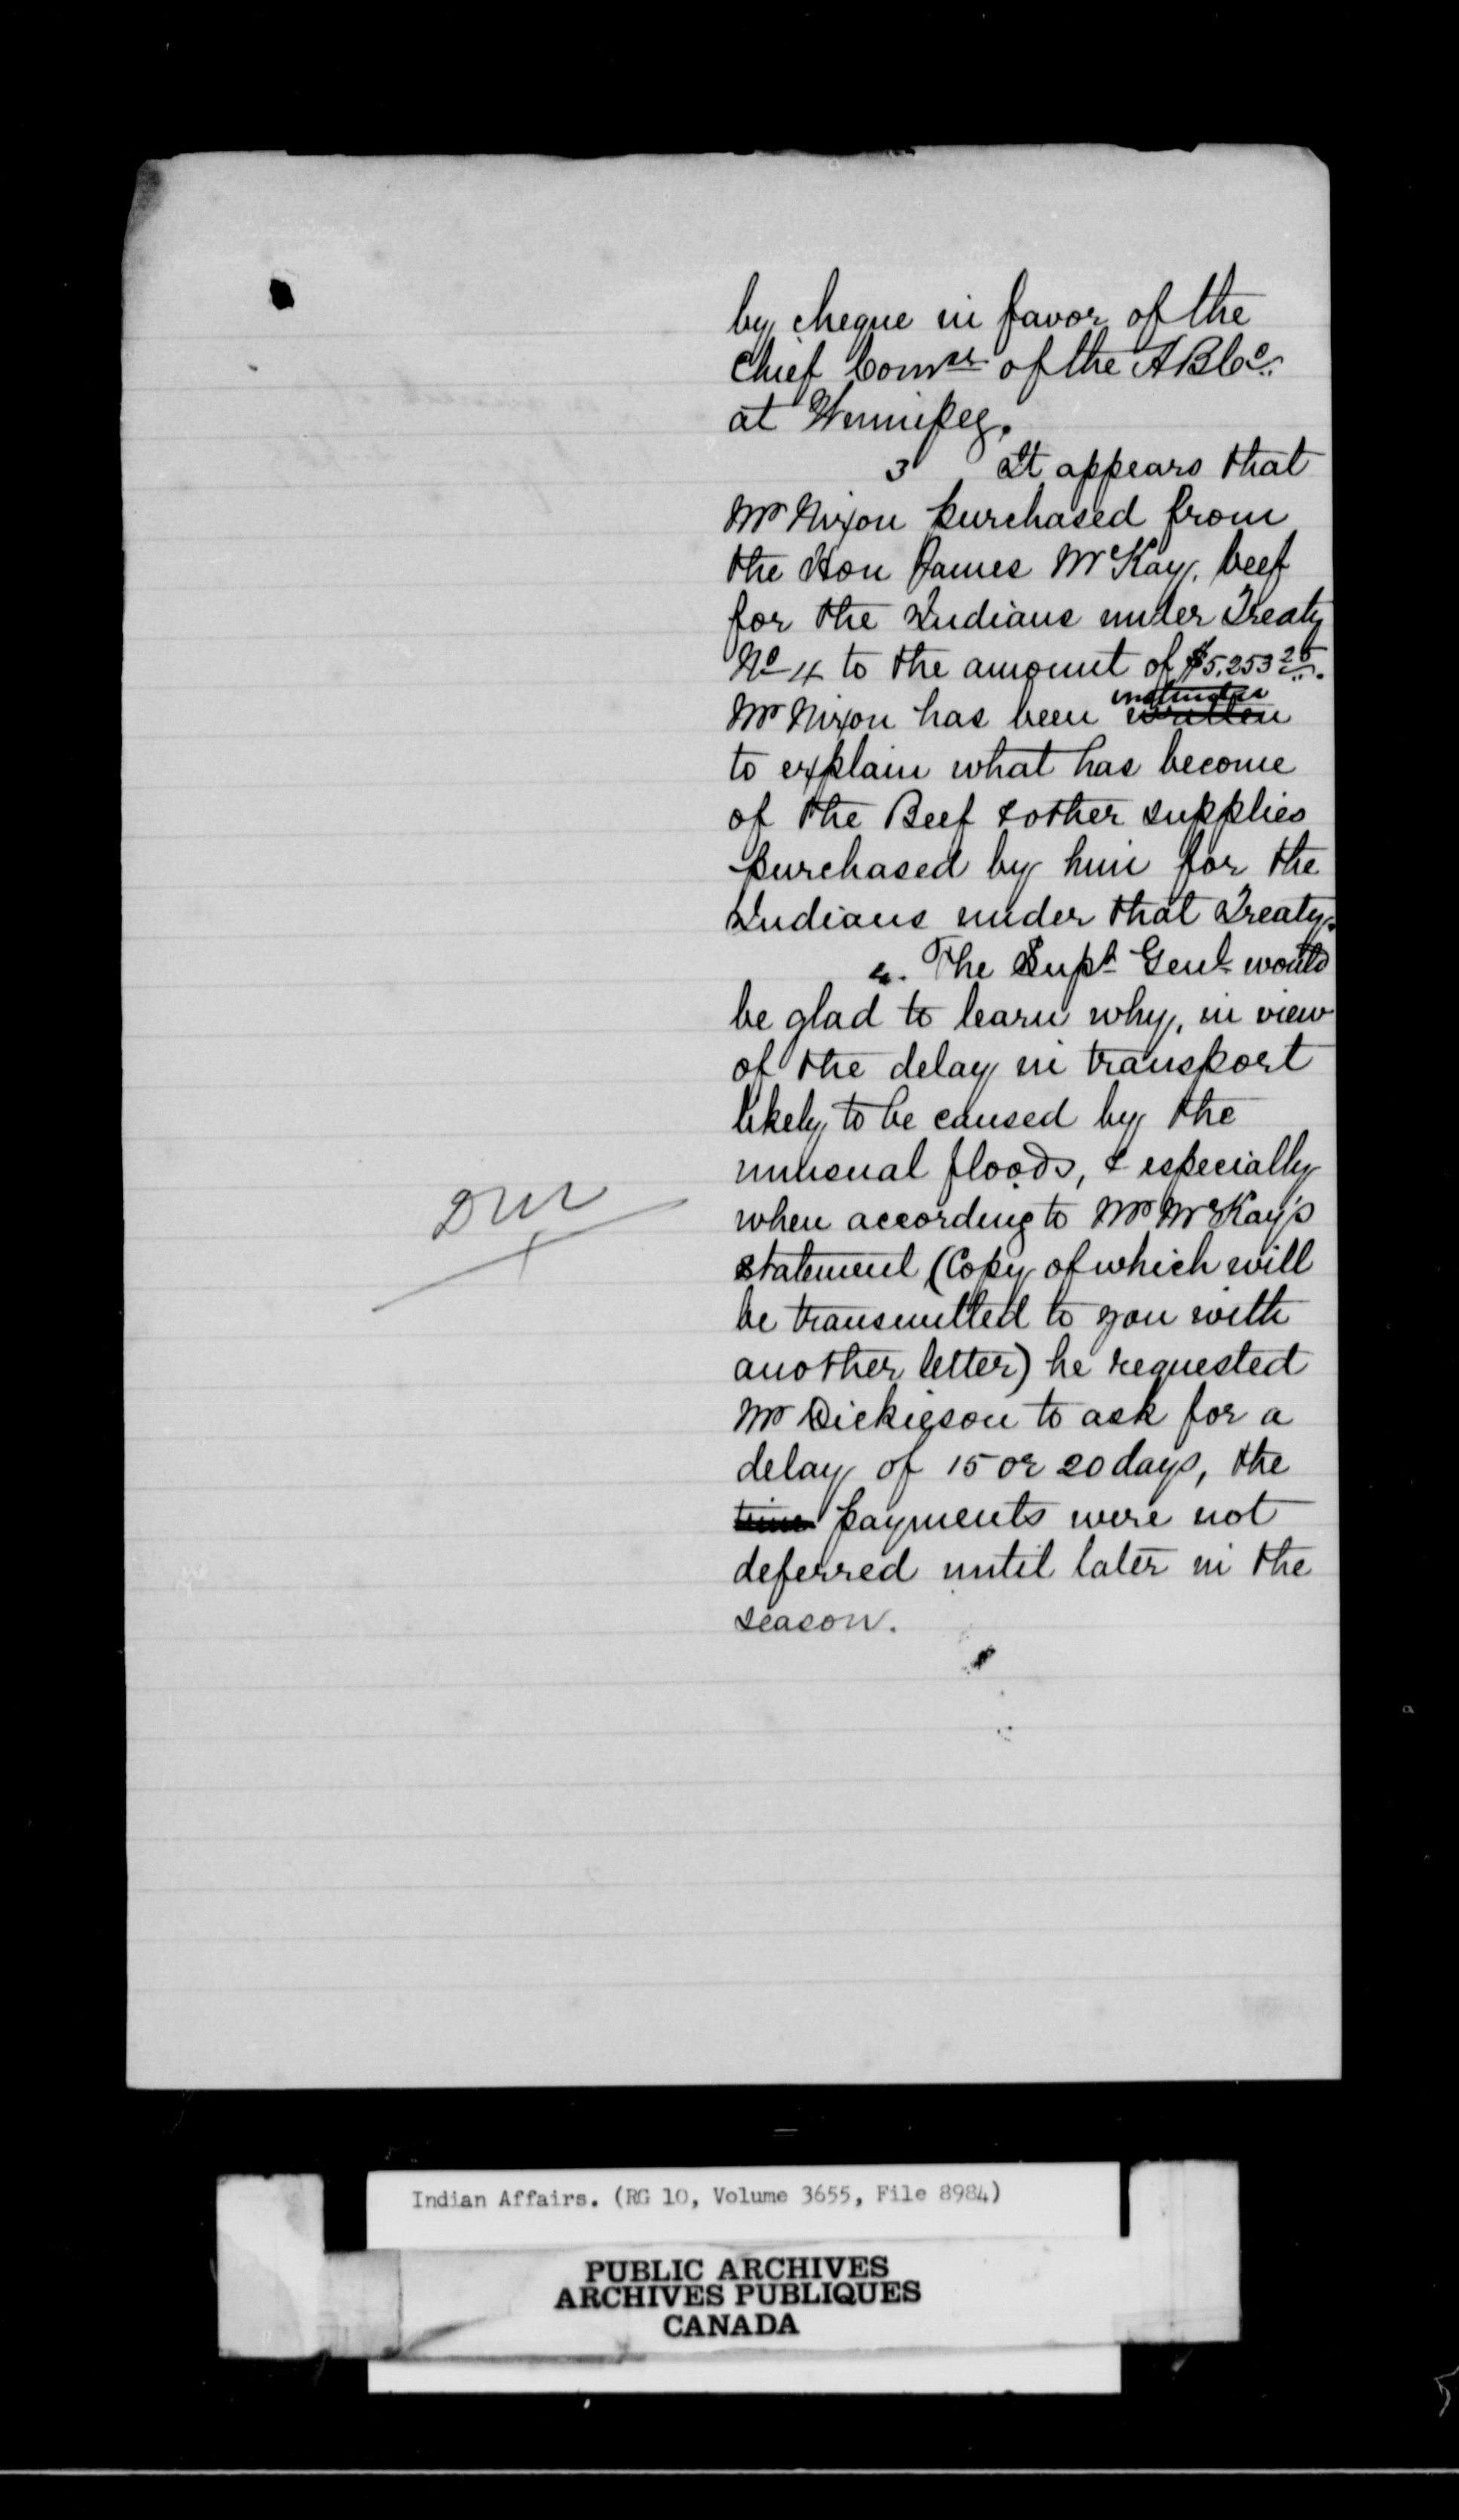 by cheque in favor of the
Chief Comsr of the HBCo.
at Winnipeg.
3 It appears that
Mr Nixon purchased from
the Hon James McKay, beef
for the Indians under Treaty
No 4 to the amount of $5,253 25.
instructed
Mr Nixon has been written
to explain what has become
of the Beef & other supplies
purchased by him for the
Indians under that Treaty.
4. The Supt Genl would
be glad to learn why, in view
of the delay in transport
likely to be caused by the
unusual floods, & especially
when according to Mr McKay's
statement (Copy of which will
be transmitted to you with
another letter) he requested
Mr Dickieson to ask for a
delay of 15 or 20 days, the
time payments were not
deferred until later in the
season.
Indian Affairs. (RG 10, Volume 3655, File 8984)
PUBLIC ARCHIVES
ARCHIVES PUBLIQUES
CANADA